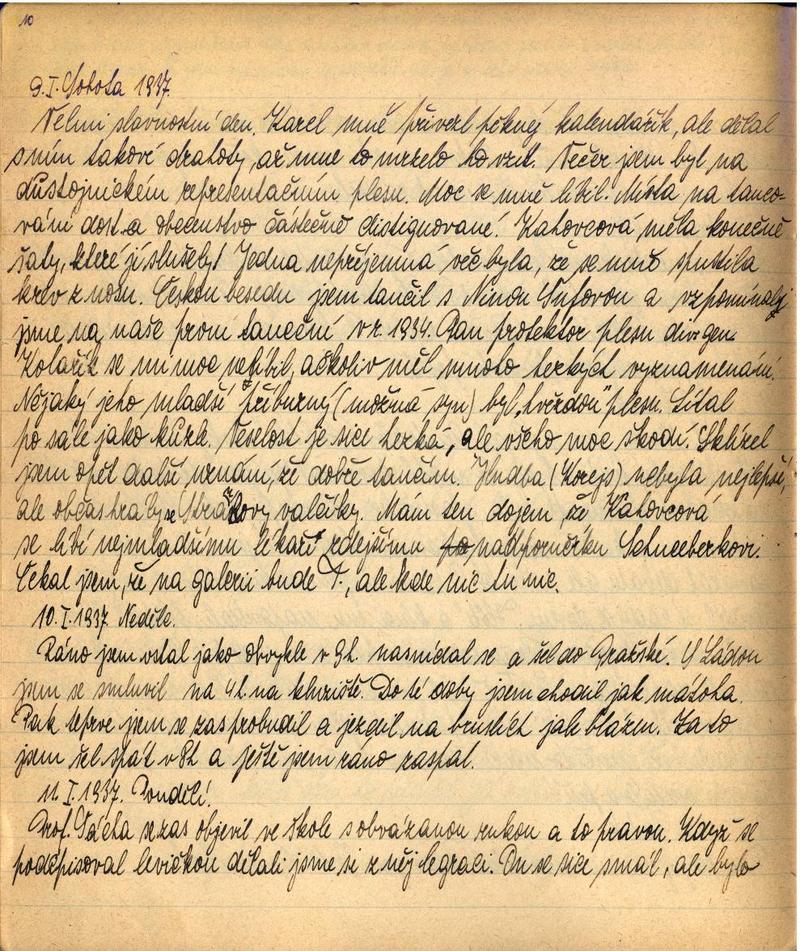 10
9.I. Sobota 1937.
Velmi slavnostní den. Karel mně přivezl pěkný kalendářík, ale dělal
s ním takové drahoty, až mne to mrzelo to vzít. Večer jsem byl na
důstojnickém representačním plesu. Moc se mně líbil. Místa na tanco-
vání dost a obecenstvo částečně distignované! Kahovcová měla konečně
šaty, které jí slušely! Jedna nepříjemná věc byla, že se mně spustila
krev z nosu. Českou besedu jsem tančil s Ninou a vzpomínaly
jsme na naše první taneční v r. 1934. Pan protektor plesu div. gen.
Kolařík se mi moc nelíbil, ačkoliv měl mnoho hezkých vyznamenání.
Nějaký jeho mladší příbuzný (možná syn) byl "hvězdou" plesu. Lítal
po sále jako kuře. Veselost je sice hezká, ale všeho moc škodí. Sklízel
jsem opět další uznání, že dobře tančím. Hudba (Korejs) nebyla nejlepší,
ale občas hrály se valčíky. Mám ten dojem že Kahovcová
se líbí nejmladšímu lékaři zdejšímu nadporučíku Schneeberkovi.
Čekal jsem, že na galerii bude T., ale kde nic tu nic.
10.I.1937. Neděle.
Ráno jsem vstal jako obvykle v 9h. nasnídal se a šel do Pražské. S Láďou
jsem se smluvil na 4h. na kluziště. Do té doby jsem chodil jak mátoha.
Pak teprve jsem se zas probudil a jezdil na bruslích jak blázen. Za to
jsem šel spát v 8h a ještě jsem ráno zaspal.
11.I.1937. Pondělí.
Prof. Pácha se zas objevil ve škole s obvázanou rukou a to pravou. Když se
podpisoval levičkou dělali jsme si z něj legraci. On se sice smál, ale bylo